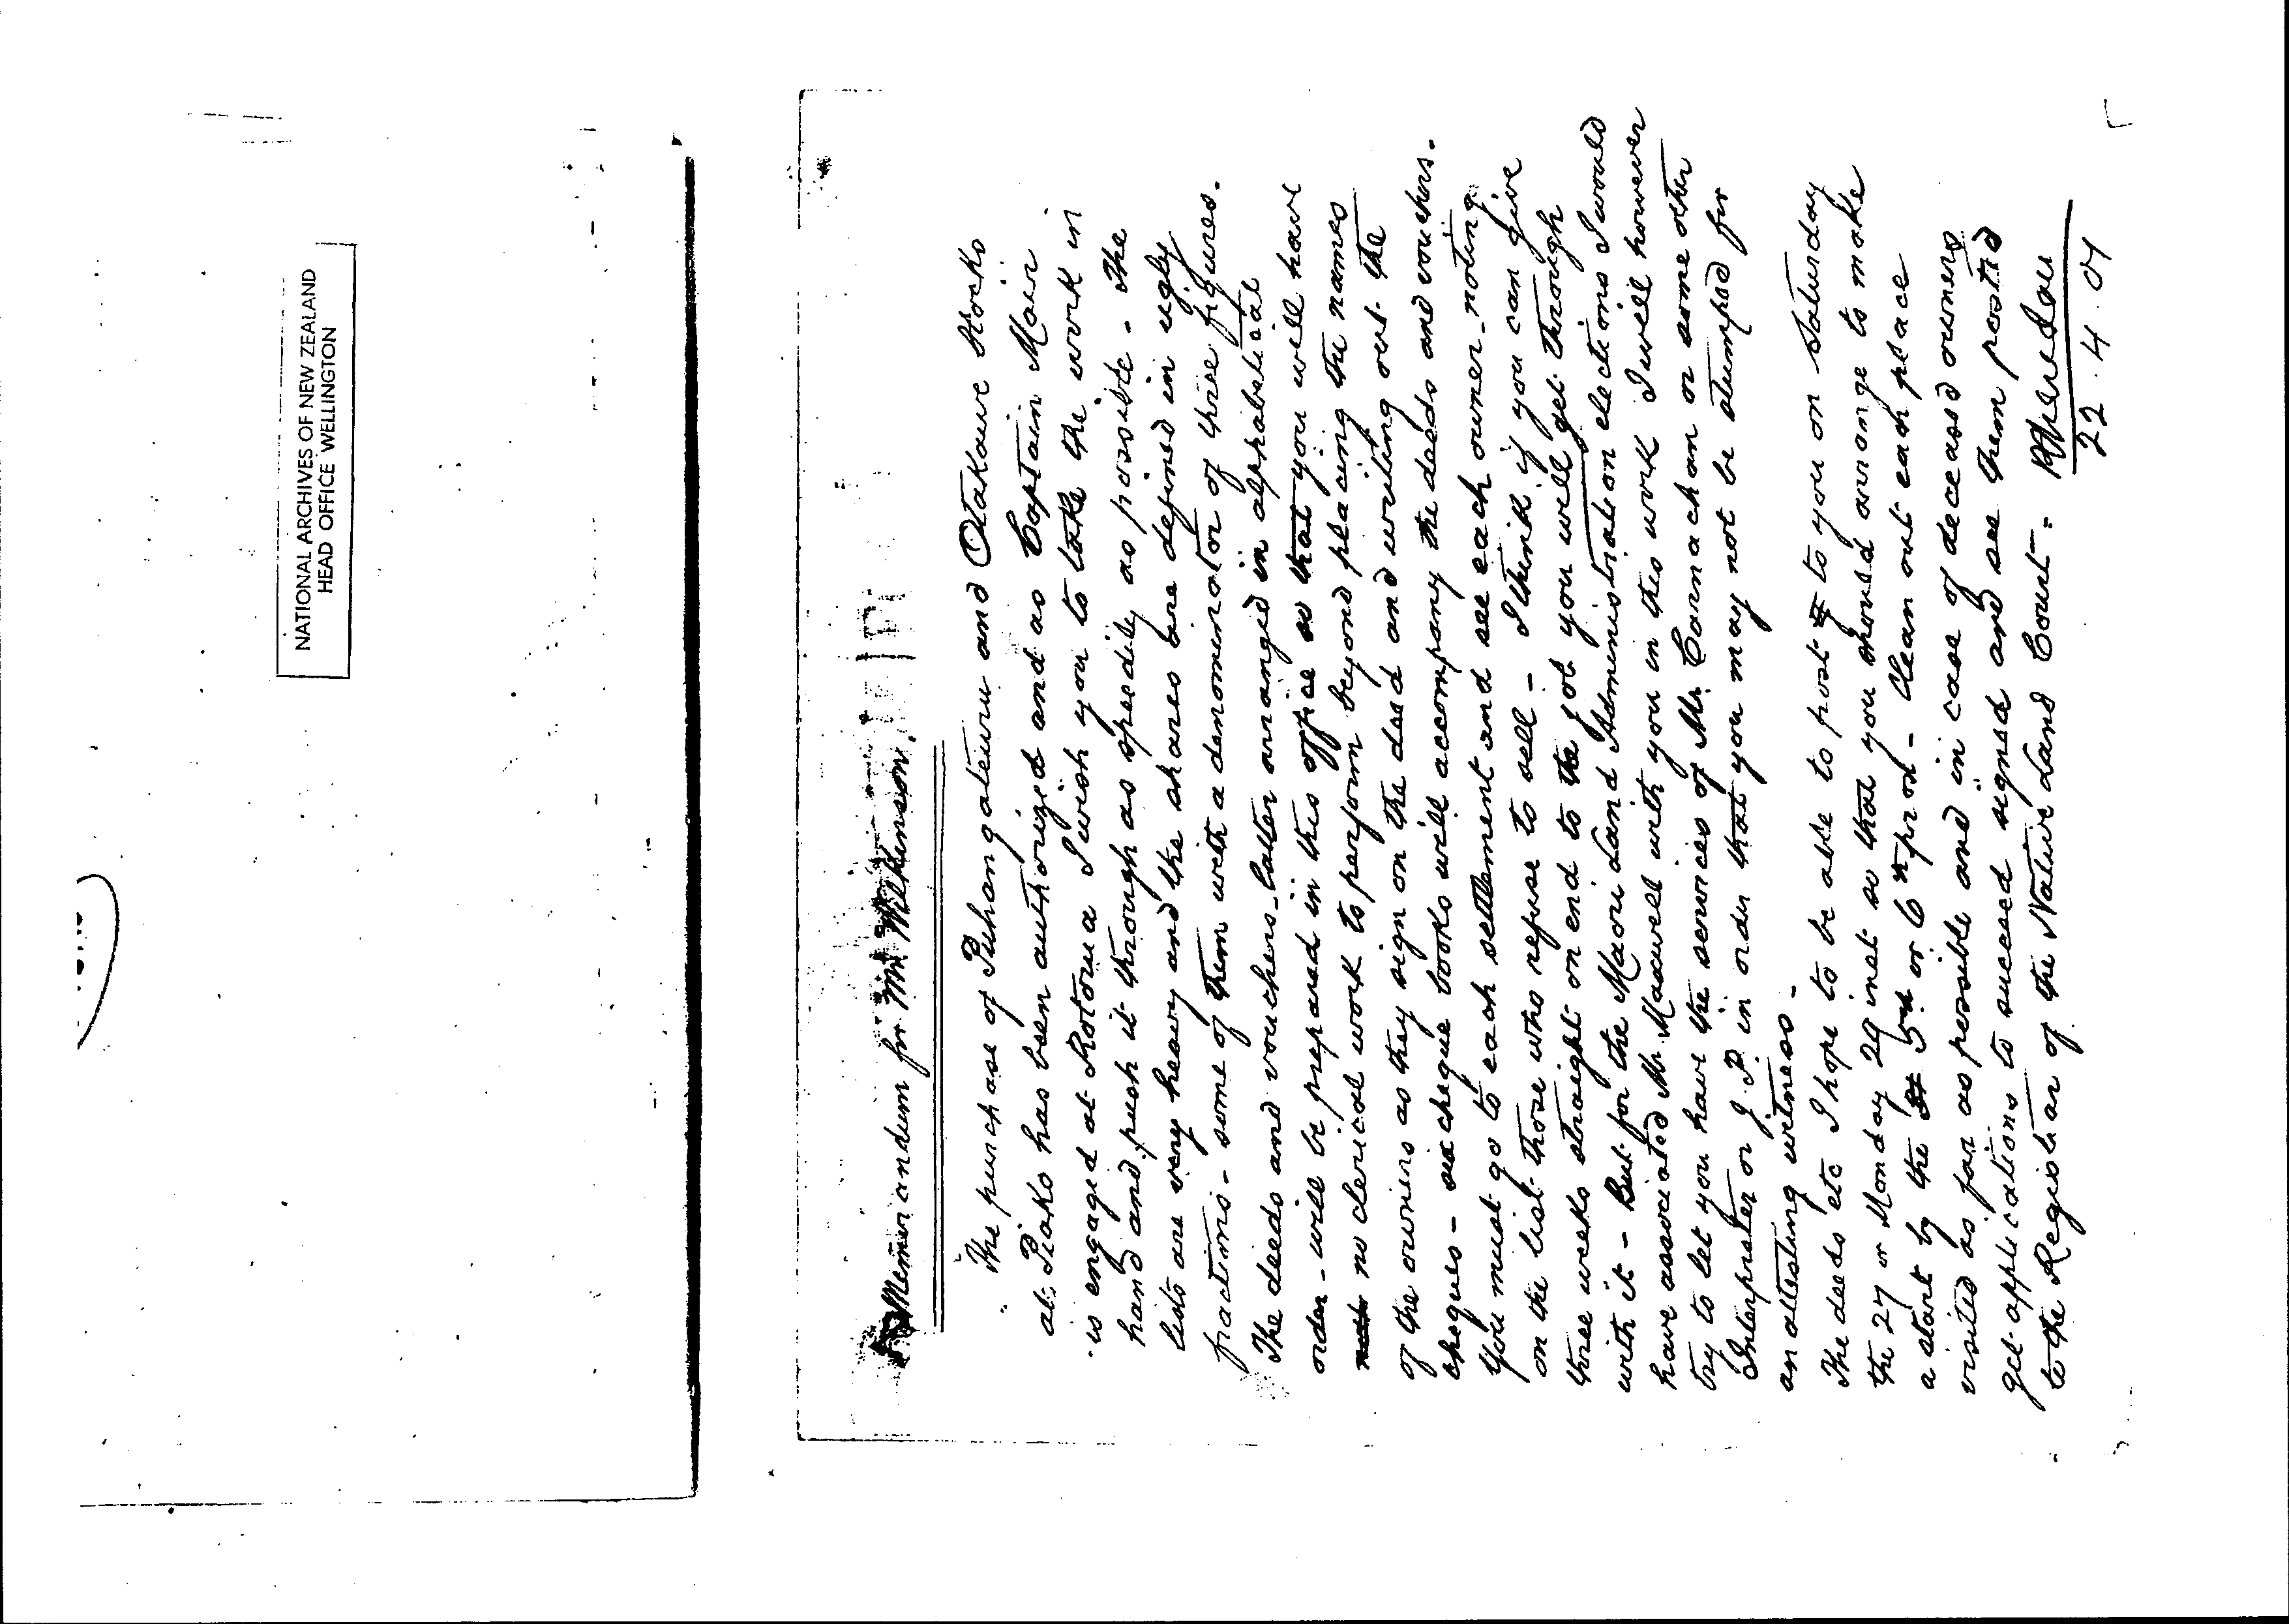 NATIONAL ARCHIVES OF NEW ZEALAND
HEAD OFFICE WELLINGTON
Memorandum for Mr. Wilkinson.
The purchase of Puhangateuru and Otakawe blocks
at Piako has been authorized and as Captain Mair
is engaged at Rotorua I wish you to take the work in
hand and push it through as speedily as possible - The
lists are very heavy and the shares are defined in ugly
fractions - some of them with a denominator of three figures.
The deeds and vouchers - latter arranged in alphabetical
order - will be prepared in this office so that you will have
no clerical work to perform beyond placing the names
of the owners as they sign on the deed and writing out the
cheques - six cheque books will accompany the deeds and vouchers.
You must go to each settlement and see each owner - noting
on the list those who refuse to sell - I think if you can give
three weeks straight on end to the job you will get through
with it - But for the Maori Land Administration elections I would
have associated Mr Maxwell with you in this work I will however
try to let you have the services of Mr. Carnachan or some other
Interpreter or J.P. in order that you may not be stumped for
an attesting witness -
The deeds etc I hope to be able to post to you on Saturday
the 27 or Monday 29 inst so that you should arrange to make
a start by the 5th or 6th prox - Clean out each place
visited as far as possible and in case of deceased owners
get applications to succeed signed and see them posted
to the Registrar of the Native Land Court.
22.4.01